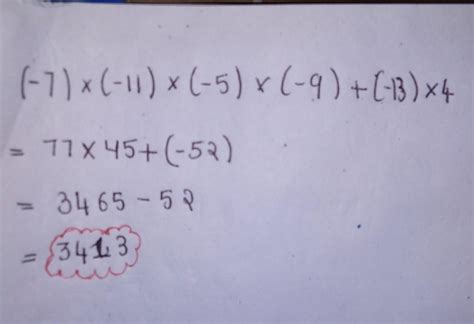 (-7) × (-11) × (-5) × (-9) + (-13) × 4
= 77 × 45 + (-52)
= 3465 - 52
= 3413